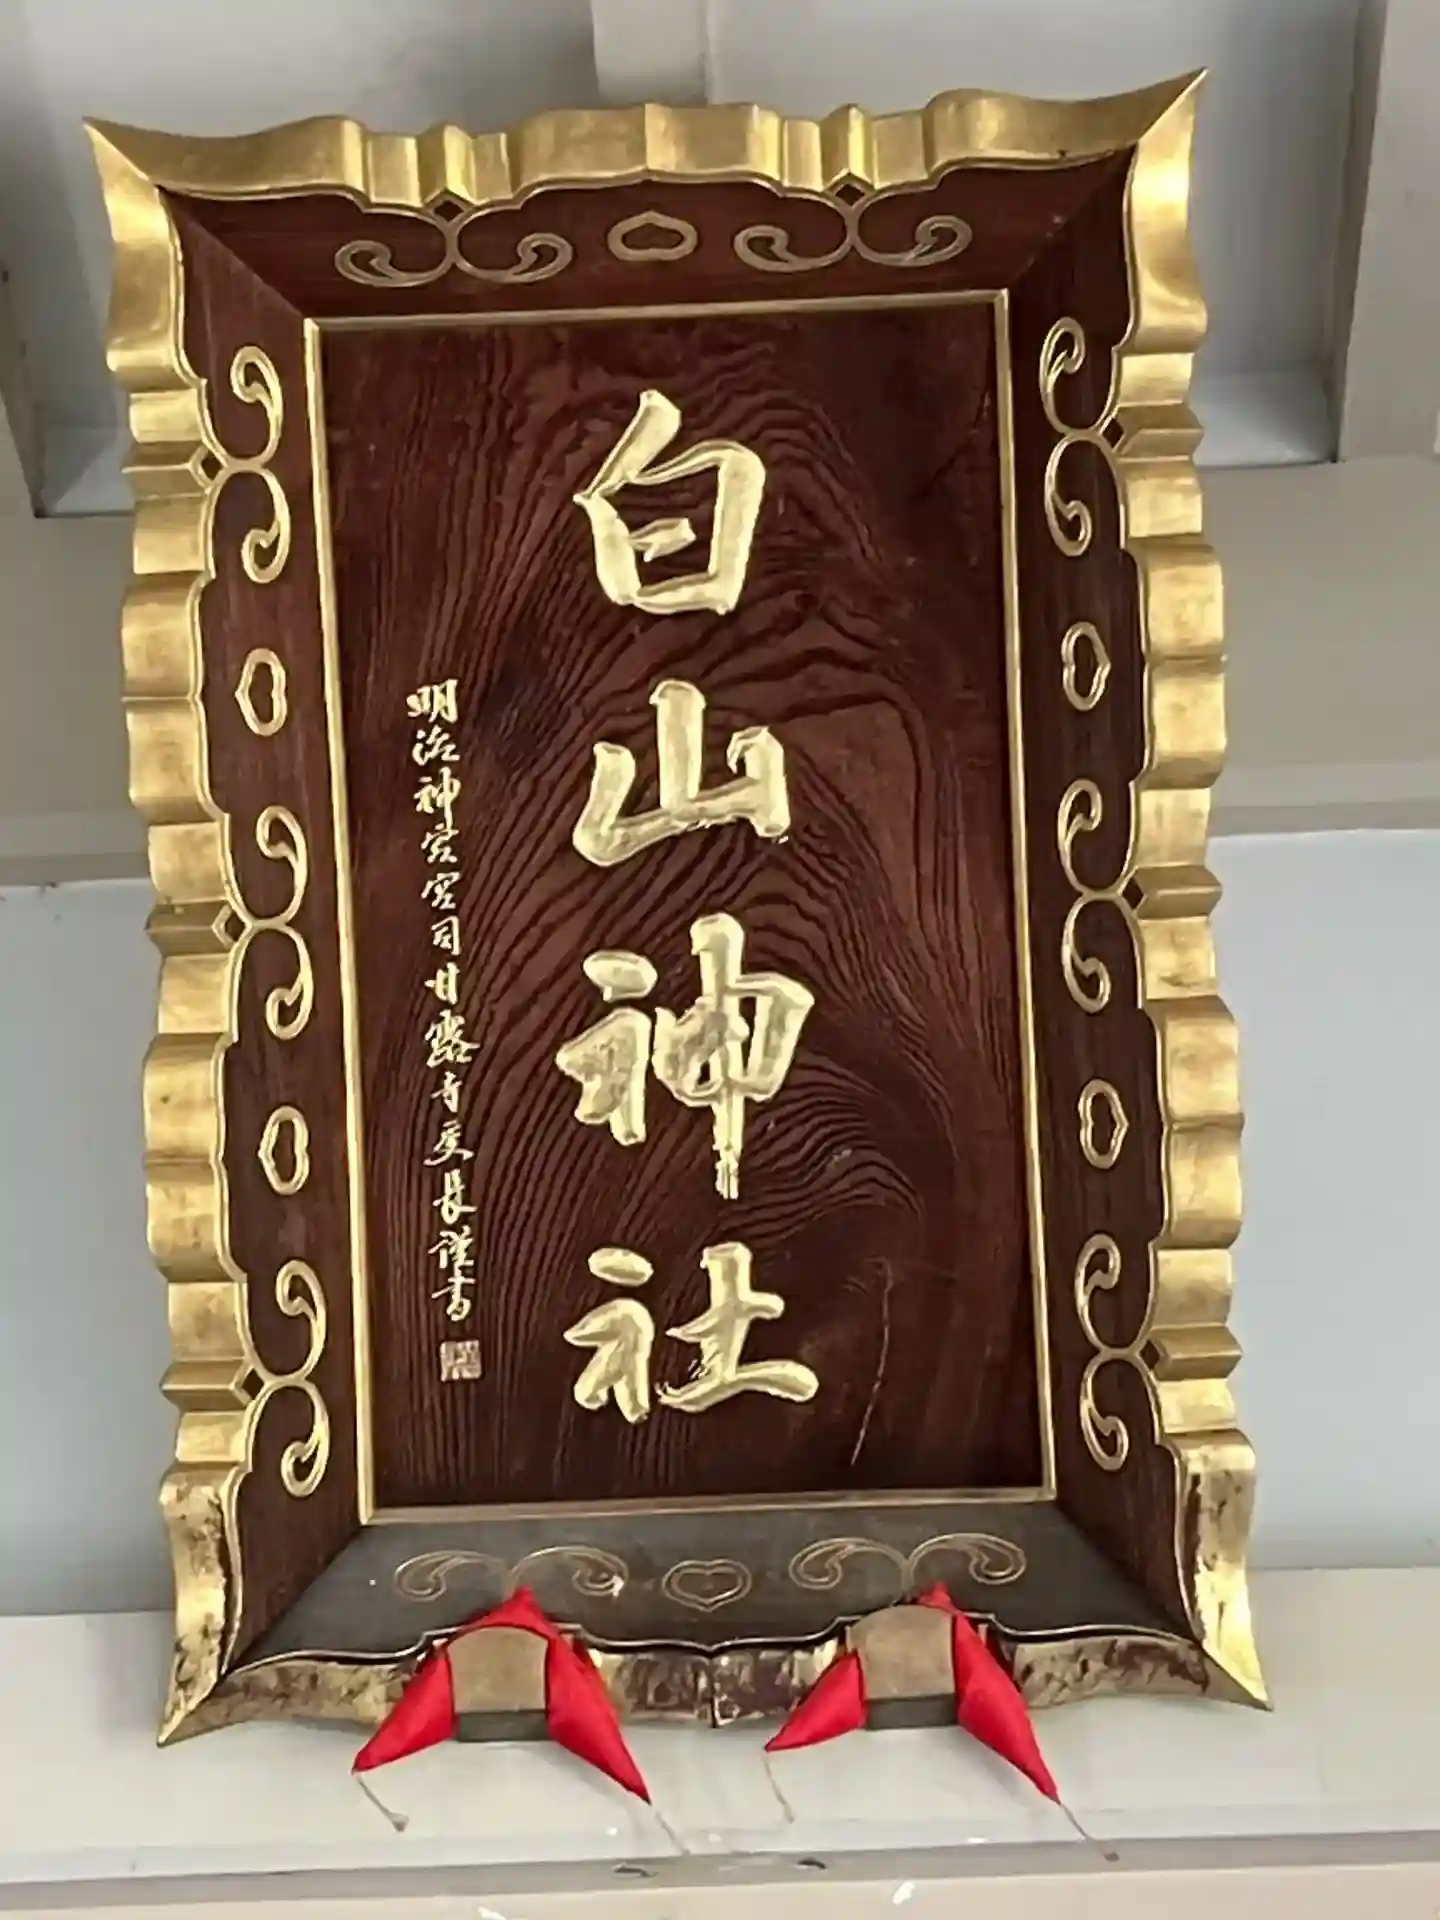 白山神社
明治神宮宮司甘露寺受長謹書